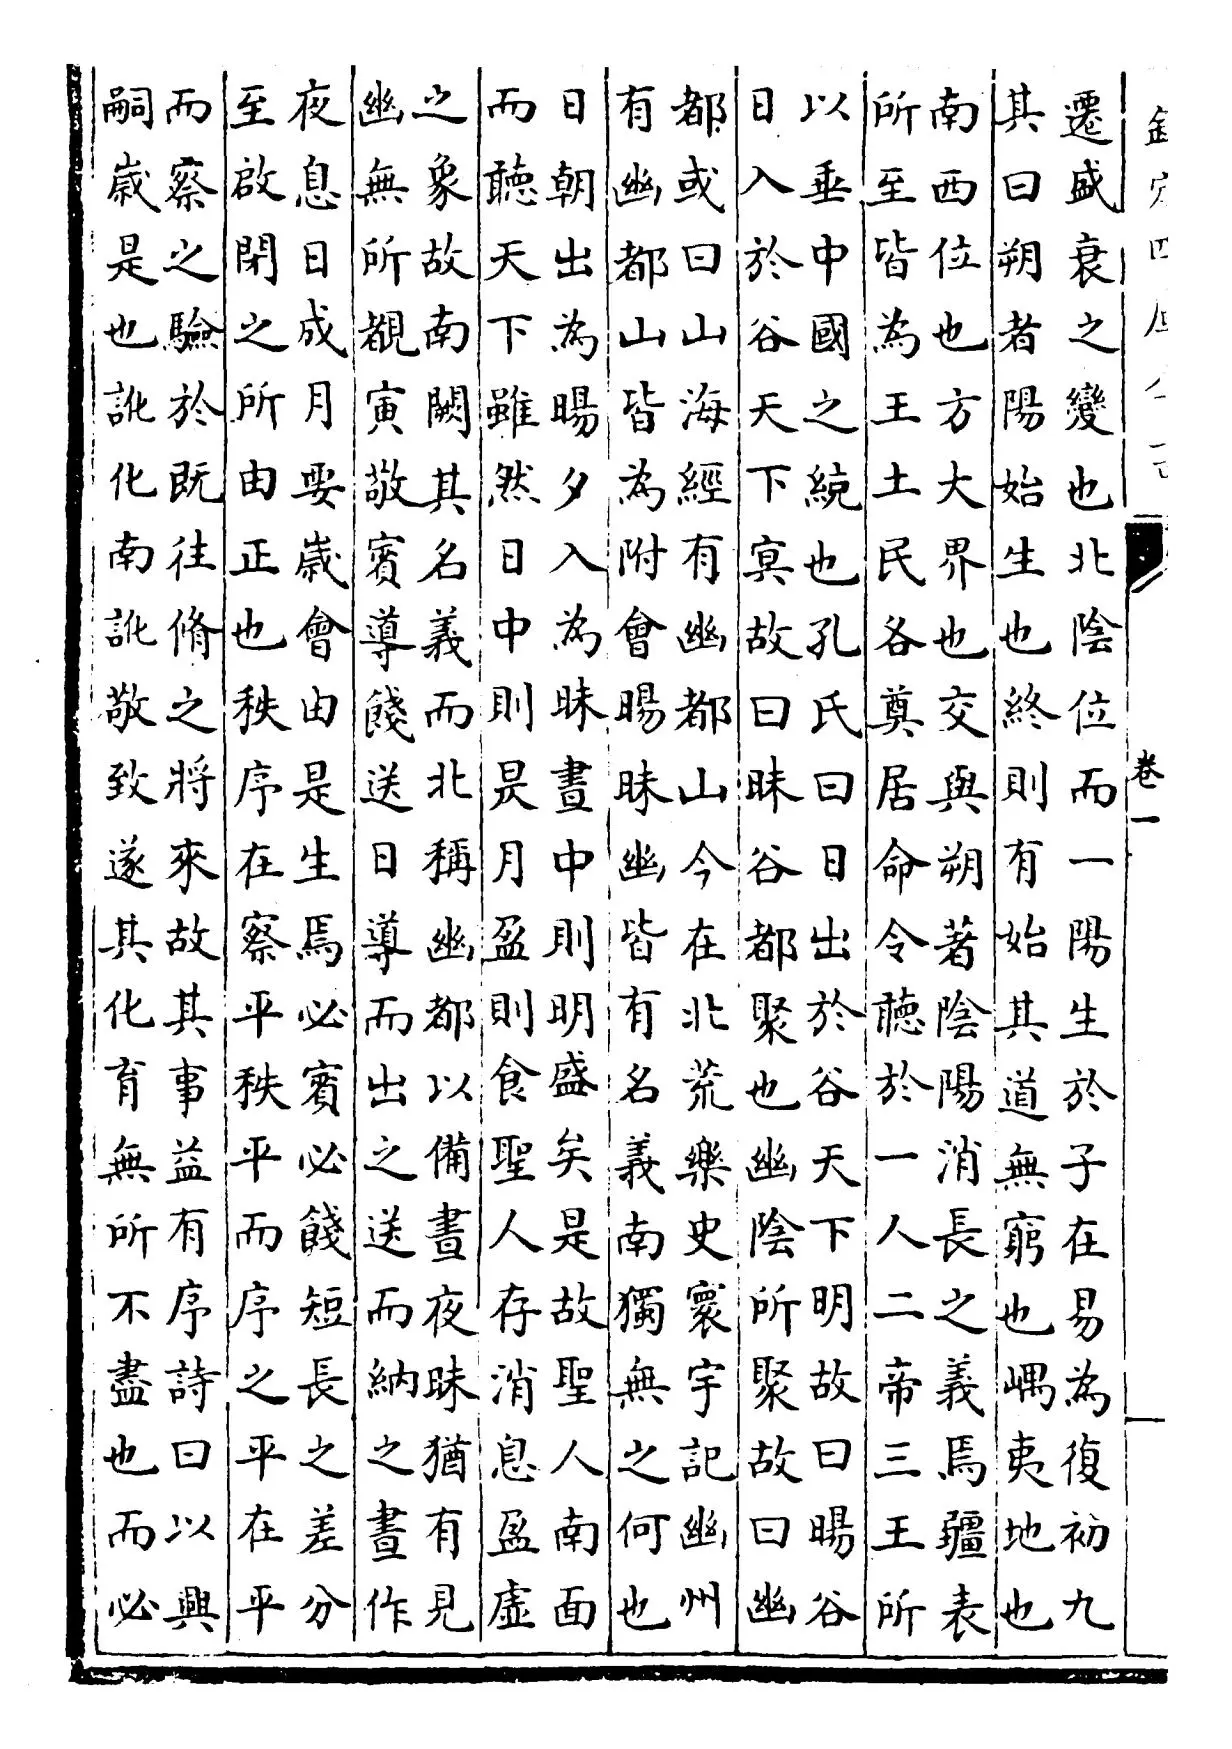 欽定四庫全書
卷一
遷盛衰之變也北陰位而一陽生於子在易為復初九
其曰朔者陽始生也終則有始其道無窮也嵎夷地也
南西位也方大界也交與朔著陰陽消長之義焉疆表
所至皆為王土民各奠居命令聽於一人二帝三王所
以垂中國之統也孔氏曰日出於谷天下明故曰暘谷
日入於谷天下冥故曰昧谷都聚也幽陰所聚故曰幽
都或曰山海經有幽都山今在北荒樂史寰宇記幽州
有幽都山皆為附會暘昧幽皆有名義南獨無之何也
日朝出為暘夕入為昧晝中則明盛矣是故聖人南面
而聽天下雖然日中則昃月盈則食聖人存消息盈虛
之象故南闕其名義而北稱幽都以備晝夜昧猶有見
幽無所覩寅敬賓導餞送日導而出之送而納之晝作
夜息日成月要歲會由是生焉必賓必餞短長之差分
至啟閉之所由正也秩序在察平秩平而序之平在平
而察之驗於既往脩之將來故其事益有序詩曰以興
嗣歲是也訛化南訛敬致遂其化育無所不盡也而必